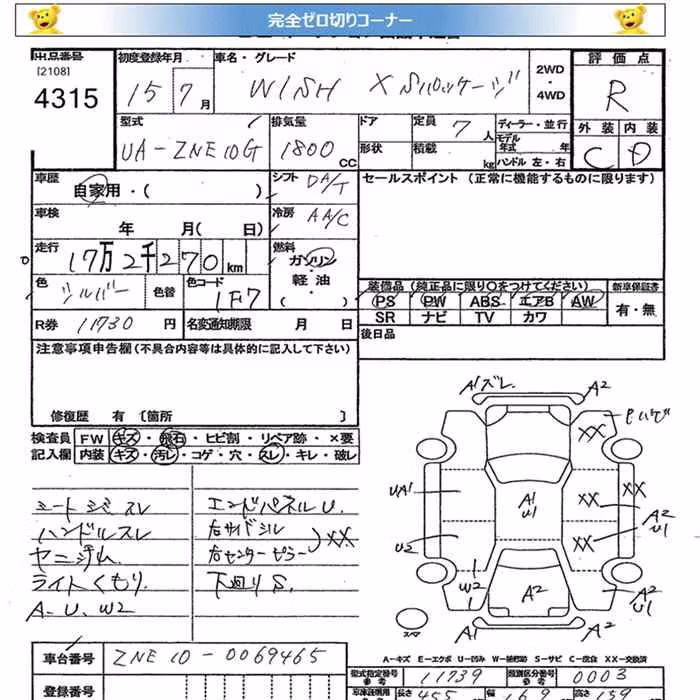 完全ゼロ切りコーナー
出品番号 初度登録年月 車名・グレード 評価点
[2108]
4315 15年7月 WISH X 2WD・4WD R
型式 排気量 ドア 定員 7人 ディーラー・並行 外装 内装
UA-ZNE10G 1800cc 形状 積載 kg モデル年式 年 ハンドル 左・右 C D
車歴 自家用・( ) シフト DA/T セールスポイント (正常に機能するものに限ります)
車検 年 月(日) 冷房 AA/C
走行 17万2千270km 燃料 ガソリン 軽油 ・( )
色 シルバー 色替 色コード 1F7 装備品 (純正品に限り○をつけてください) 新車保証書
PS PW ABS エアB AW 有・無
SR ナビ TV カワ
R券 11730円 名変通知期限 月 日 後日品
注意事項申告欄 (不具合内容等は具体的に記入して下さい)
修復歴 有 [箇所 ]
検査員 FW キズ・飛石・ヒビ割・リペア跡・×要
記入欄 内装 キズ・汚レ・コゲ・穴・スレ・キレ・破レ
シートシミスレ エンドパネルU.
ハンドルスレ 右サイドシル
ヤニジム 右センターピラー XX
ライトくもり. 下廻りS.
A-U. W2
A1ズレ. A2
XX
UA1 A1 U1 XX XX A2 U1
U2 XX
W2 A2 A2 U1
スペア A1 A2
A-キズ E-エクボ U-凹み W-補修跡 S-サビ C-腐食 XX-交換済
車台番号 ZNE10-0069465 型式指定番号 参考 11739 類別区分番号 参考 0003
登録番号 長さ 455 幅 169 高さ 159